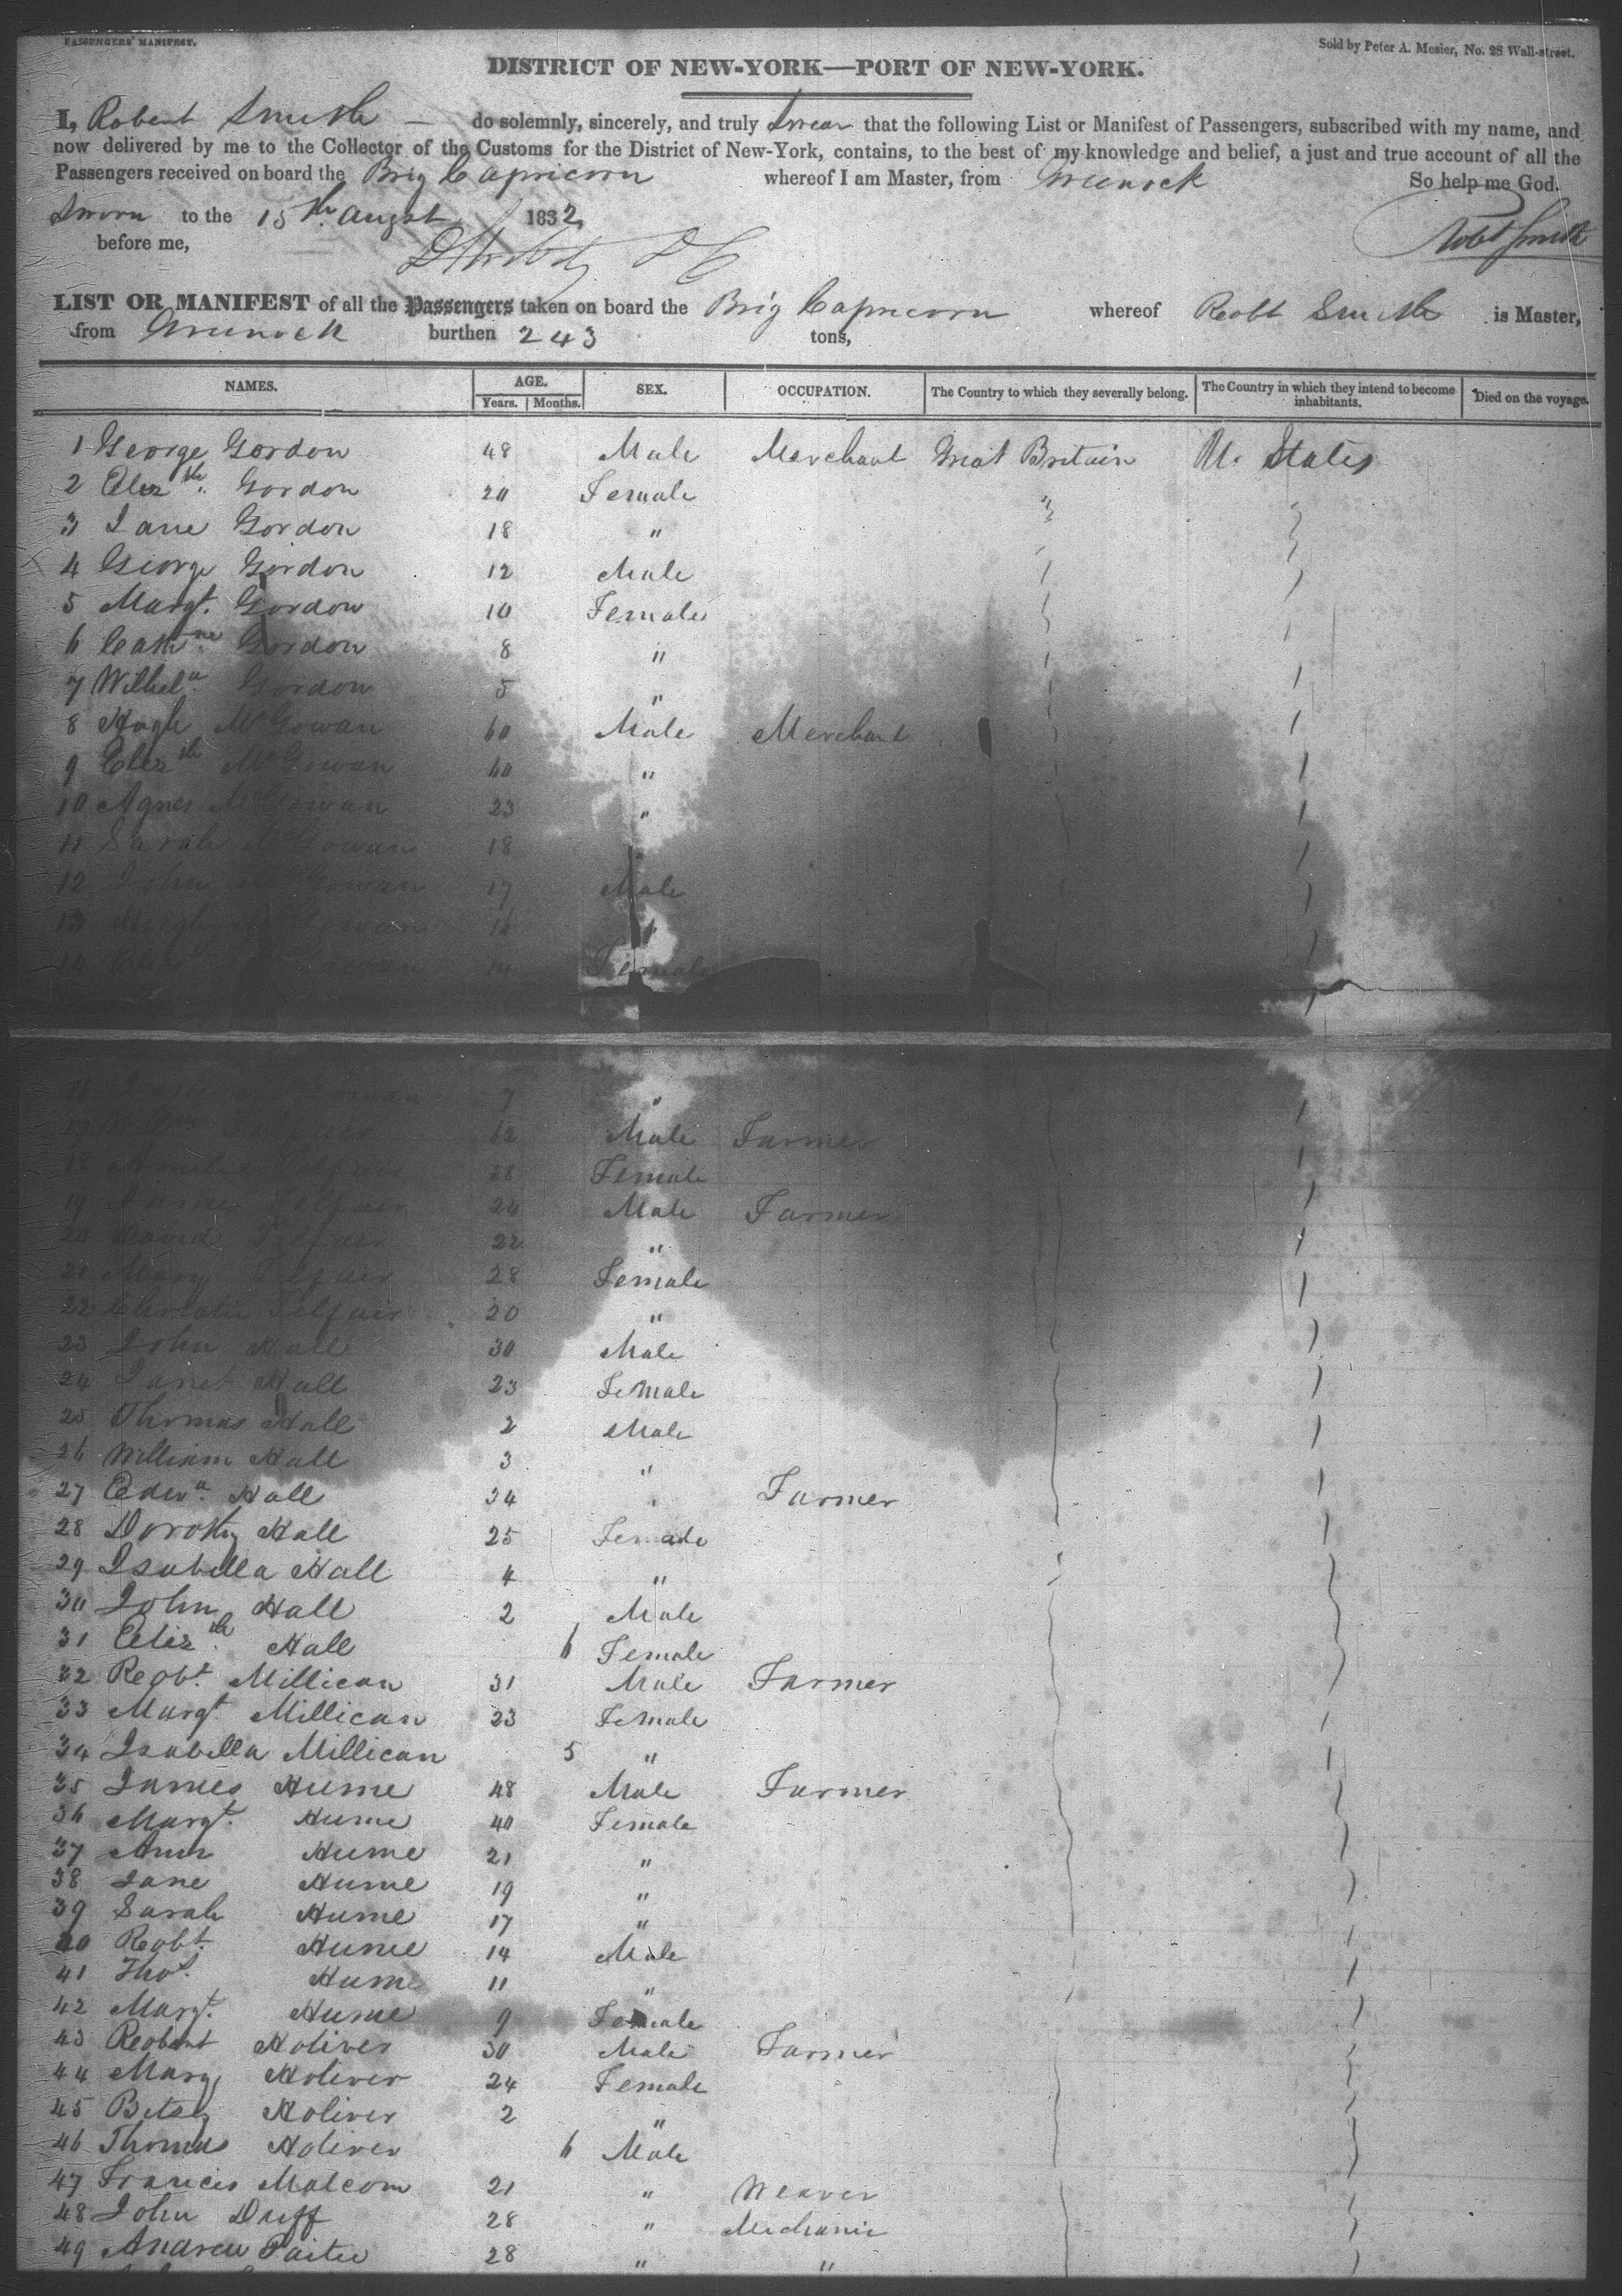 PASSENGERS' MANIFEST.
Sold by Peter A. Mesier, No. 28 Wall-street.
DISTRICT OF NEW-YORK—PORT OF NEW-YORK.
I, Robert Smith — do solemnly, sincerely, and truly Swear that the following List or Manifest of Passengers, subscribed with my name, and
now delivered by me to the Collector of the Customs for the District of New-York, contains, to the best of my knowledge and belief, a just and true account of all the
Passengers received on board the Brig Capricorn whereof I am Master, from Greenock So help me God.
Sworn to the 15th. Augst 1832
before me,
Robt Smith
LIST OR MANIFEST of all the Passengers taken on board the Brig Capricorn whereof Robt Smith is Master,
from Greenock burthen 243 tons,
NAMES. AGE. SEX. OCCUPATION. The Country to which they severally belong. The Country in which they intend to become inhabitants. Died on the voyage.
Years. Months.
1 George Gordon 48 Male Merchant Great Britain U. States
2 Elizth. Gordon 20 Female "
3 Jane Gordon 18 "
4 George Gordon 12 Male
5 Margt. Gordon 10 Female
6 Cathne. Gordon 8 "
7 Wilhela. Gordon 5 "
8 Hugh McGowan 60 Male Merchant
9 Elizth McGowan 60 "
10 Agnes McGowan 23 "
11 Sarah McGowan 18
12 John McGowan 17 Male
13 Hugh McGowan 16 "
14 Gowan 14 Female
16 Gowan 7 "
17 62 Male Farmer
18 Telfair 58 Female
19 James Telfair 24 Male Farmer
20 David Telfair 22 "
21 Mary Telfair 28 Female
22 Telfair 20 "
23 John Hall 30 Male
24 Janet Hall 23 Female
25 Thomas Hall 2 Male
26 William Hall 3 "
27 Edwa. Hall 34 " Farmer
28 Dorothy Hall 25 Female
29 Isabella Hall 4 "
30 John Hall 2 Male
31 Elizth. Hall 6 Female
32 Robt. Millican 31 Male Farmer
33 Margt. Millican 23 Female
34 Isabella Millican 5 "
35 James Hume 48 Male Farmer
36 Margt. Hume 40 Female
37 Ann Hume 21 "
38 Jane Hume 19 "
39 Sarah Hume 17 "
40 Robt. Hume 14 Male
41 Thos. Hume 11 "
42 Margt. Hume 9 Female
43 Robert Holiver 30 Male Farmer
44 Mary Holiver 24 Female
45 Betsy Holiver 2 "
46 Thomas Holiver 6 Male
47 Francis Malcom 21 " Weaver
48 John Duff 28 " Mechanic
49 Andrew 28 " "